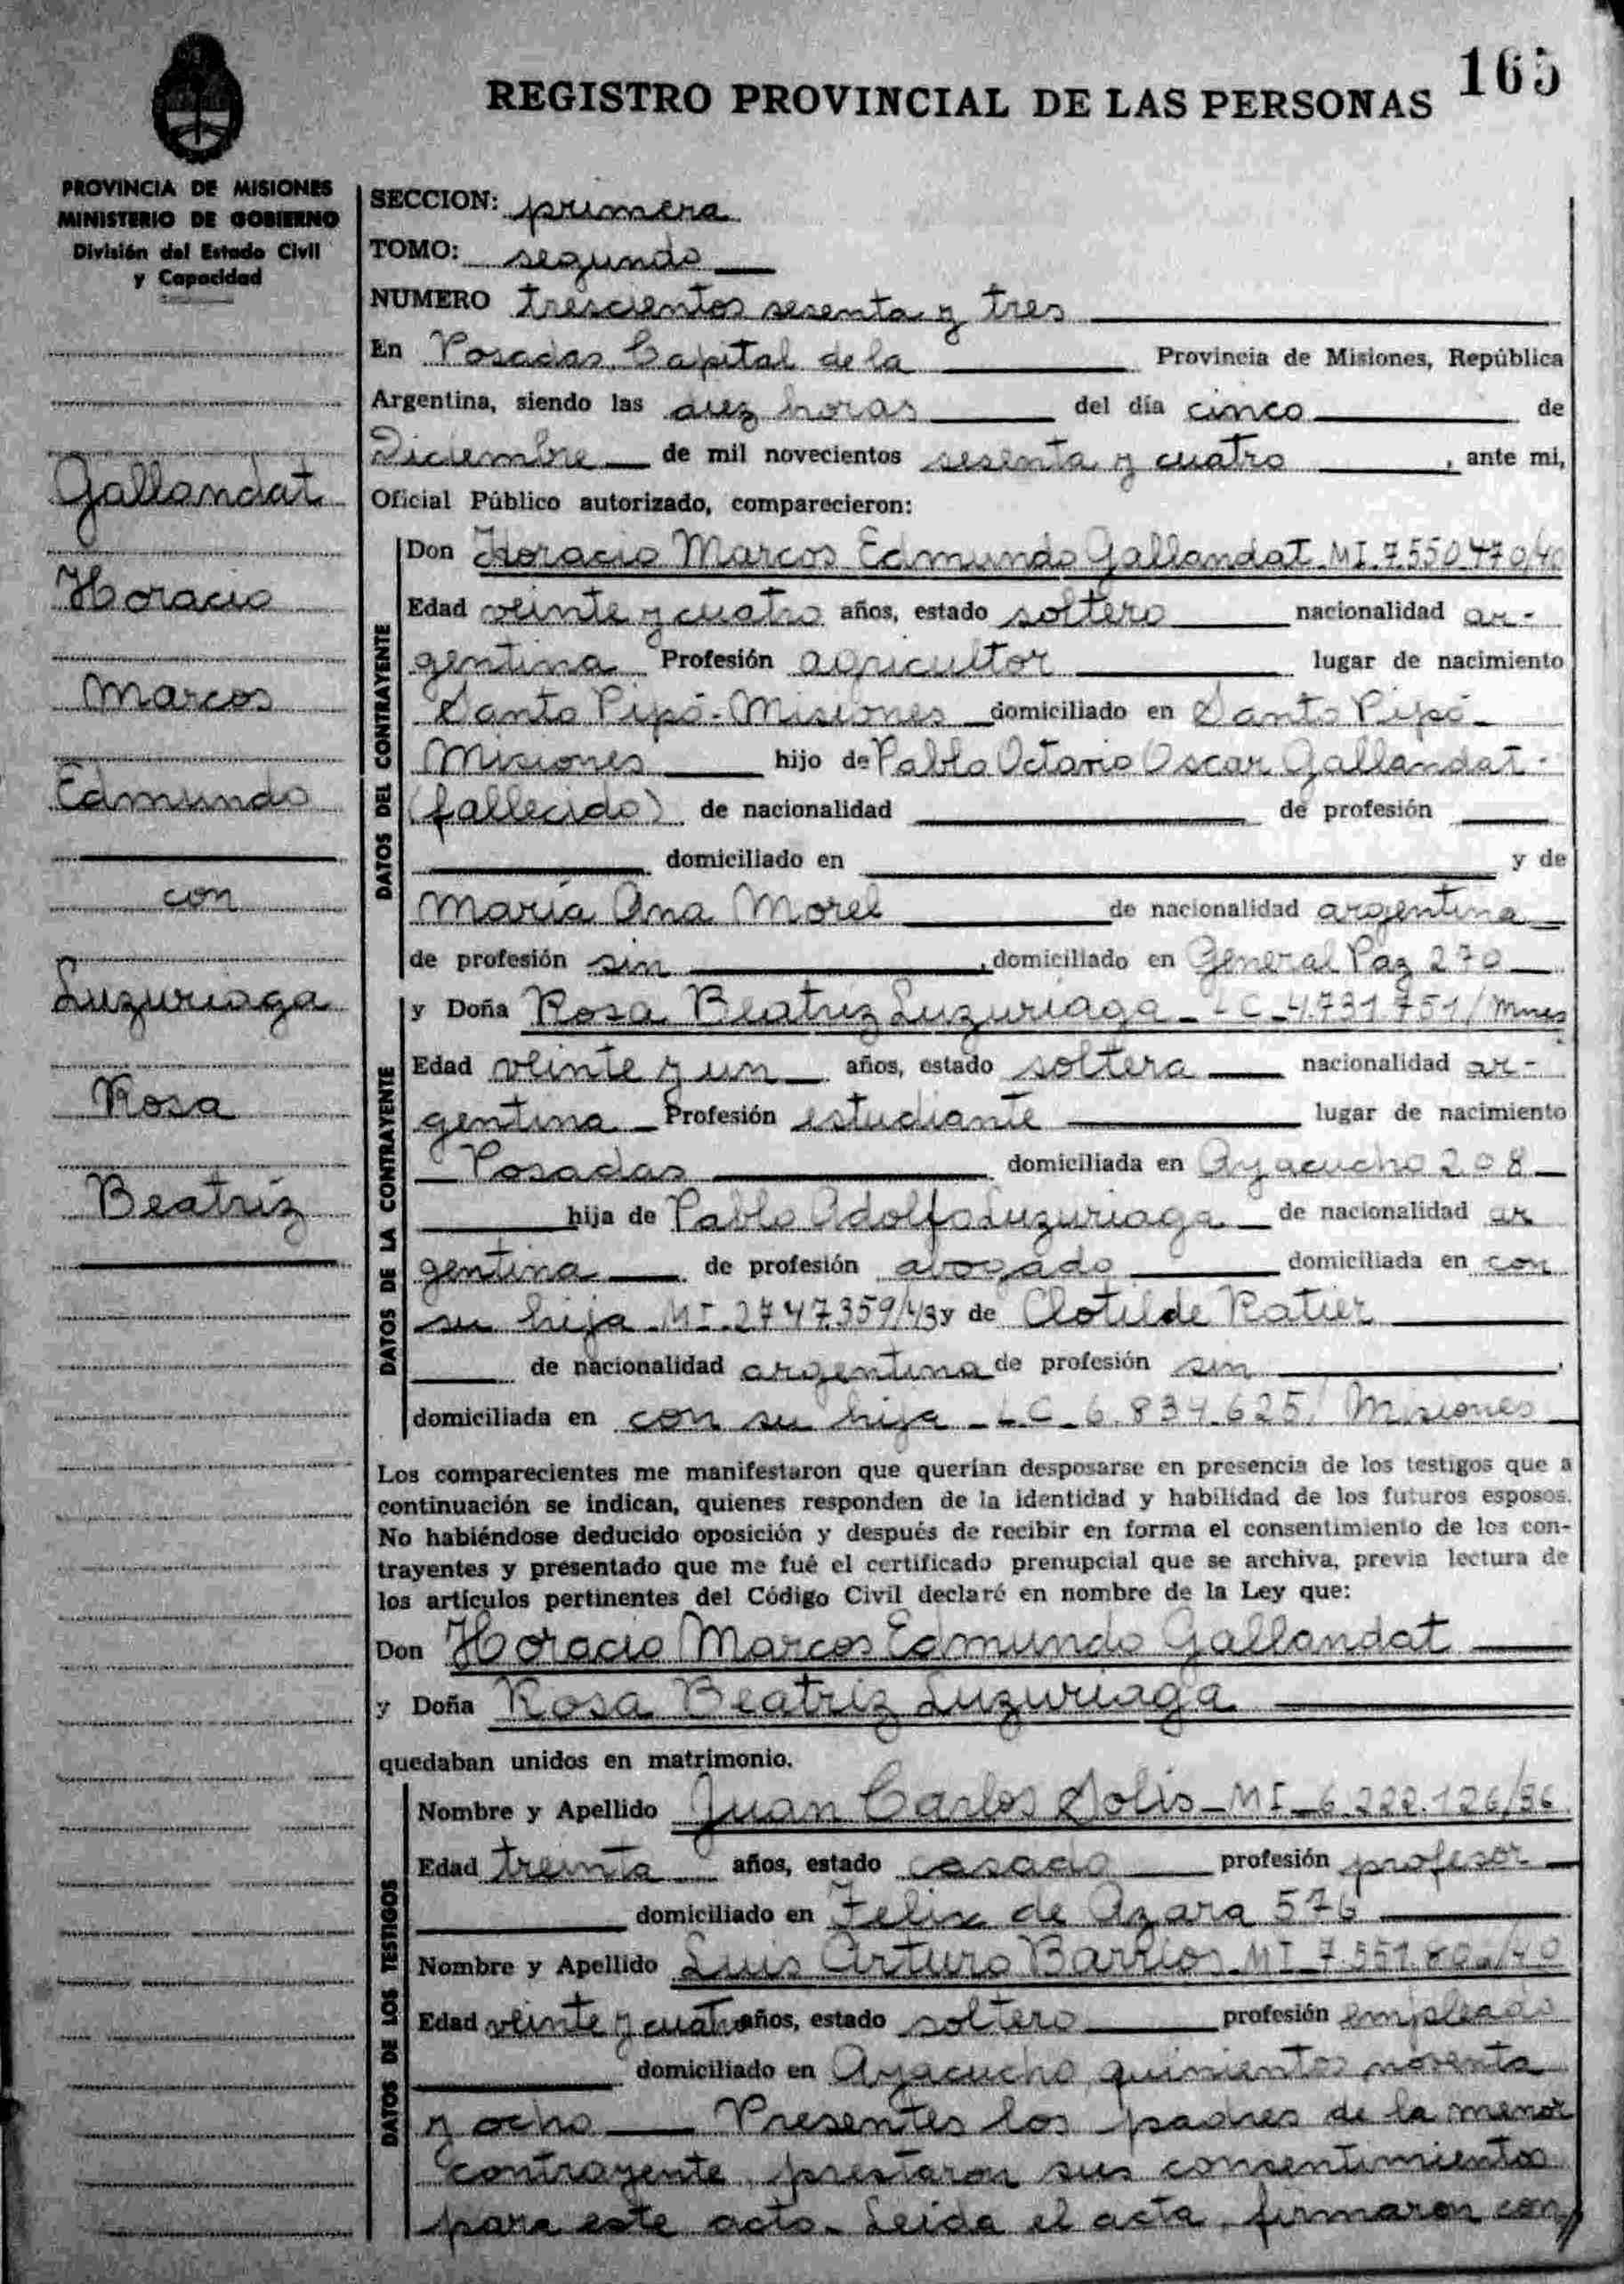 165
REGISTRO PROVINCIAL DE LAS PERSONAS
PROVINCIA DE MISIONES
MINISTERIO DE GOBIERNO
División del Estado Civil
y Capacidad
Gallandat
Horacio
Marcos
Edmundo
con
Luzuriaga
Rosa
Beatriz
SECCION: primera
TOMO: segundo
NUMERO trescientos sesenta y tres
En Posadas, Capital de la Provincia de Misiones, República
Argentina, siendo las diez horas del día cinco de
Diciembre de mil novecientos sesenta y cuatro, ante mi,
Oficial Público autorizado, comparecieron:
DATOS DEL CONTRAYENTE
Don Horacio Marcos Edmundo Gallandat MI.7.550.470/40
Edad veinte y cuatro años, estado soltero nacionalidad ar-
gentina Profesión agricultor lugar de nacimiento
Santo Pipó - Misiones domiciliado en Santo Pipó
Misiones hijo de Pablo Octavio Oscar Gallandat -
(fallecido) de nacionalidad de profesión
domiciliado en y de
María Ana Morel de nacionalidad argentina
de profesión sin, domiciliado en General Paz 270
DATOS DE LA CONTRAYENTE
y Doña Rosa Beatriz Luzuriaga - LC - 4.731.751/Mnes
Edad veinte y un años, estado soltera nacionalidad ar-
gentina Profesión estudiante lugar de nacimiento
Posadas domiciliada en Ayacucho 208
hija de Pablo Adolfo Luzuriaga de nacionalidad ar
gentina de profesión abogado domiciliada en con
su hija MI. 2747.359/43 y de Clotilde Ratier
de nacionalidad argentina de profesión sin,
domiciliada en con su hija - LC - 6.834.625/ Misiones
Los comparecientes me manifestaron que querían desposarse en presencia de los testigos que a
continuación se indican, quienes responden de la identidad y habilidad de los futuros esposos.
No habiéndose deducido oposición y después de recibir en forma el consentimiento de los con-
trayentes y presentado que me fué el certificado prenupcial que se archiva, previa lectura de
los artículos pertinentes del Código Civil declaré en nombre de la Ley que:
Don Horacio Marcos Edmundo Gallandat
y Doña Rosa Beatriz Luzuriaga
quedaban unidos en matrimonio.
DATOS DE LOS TESTIGOS
Nombre y Apellido Juan Carlos Solis - MI - 6.222.126/36
Edad treinta años, estado casado profesión profesor
domiciliado en Felix de Azara 576
Nombre y Apellido Luis Arturo Barrios MI
Edad veinte y cuatro años, estado soltero profesión empleado
domiciliado en Ayacucho quinientos noventa
y ocho Presentes los padres de la menor
contrayente prestaron sus consentimientos
para este acto. Leida el acta, firmaron con